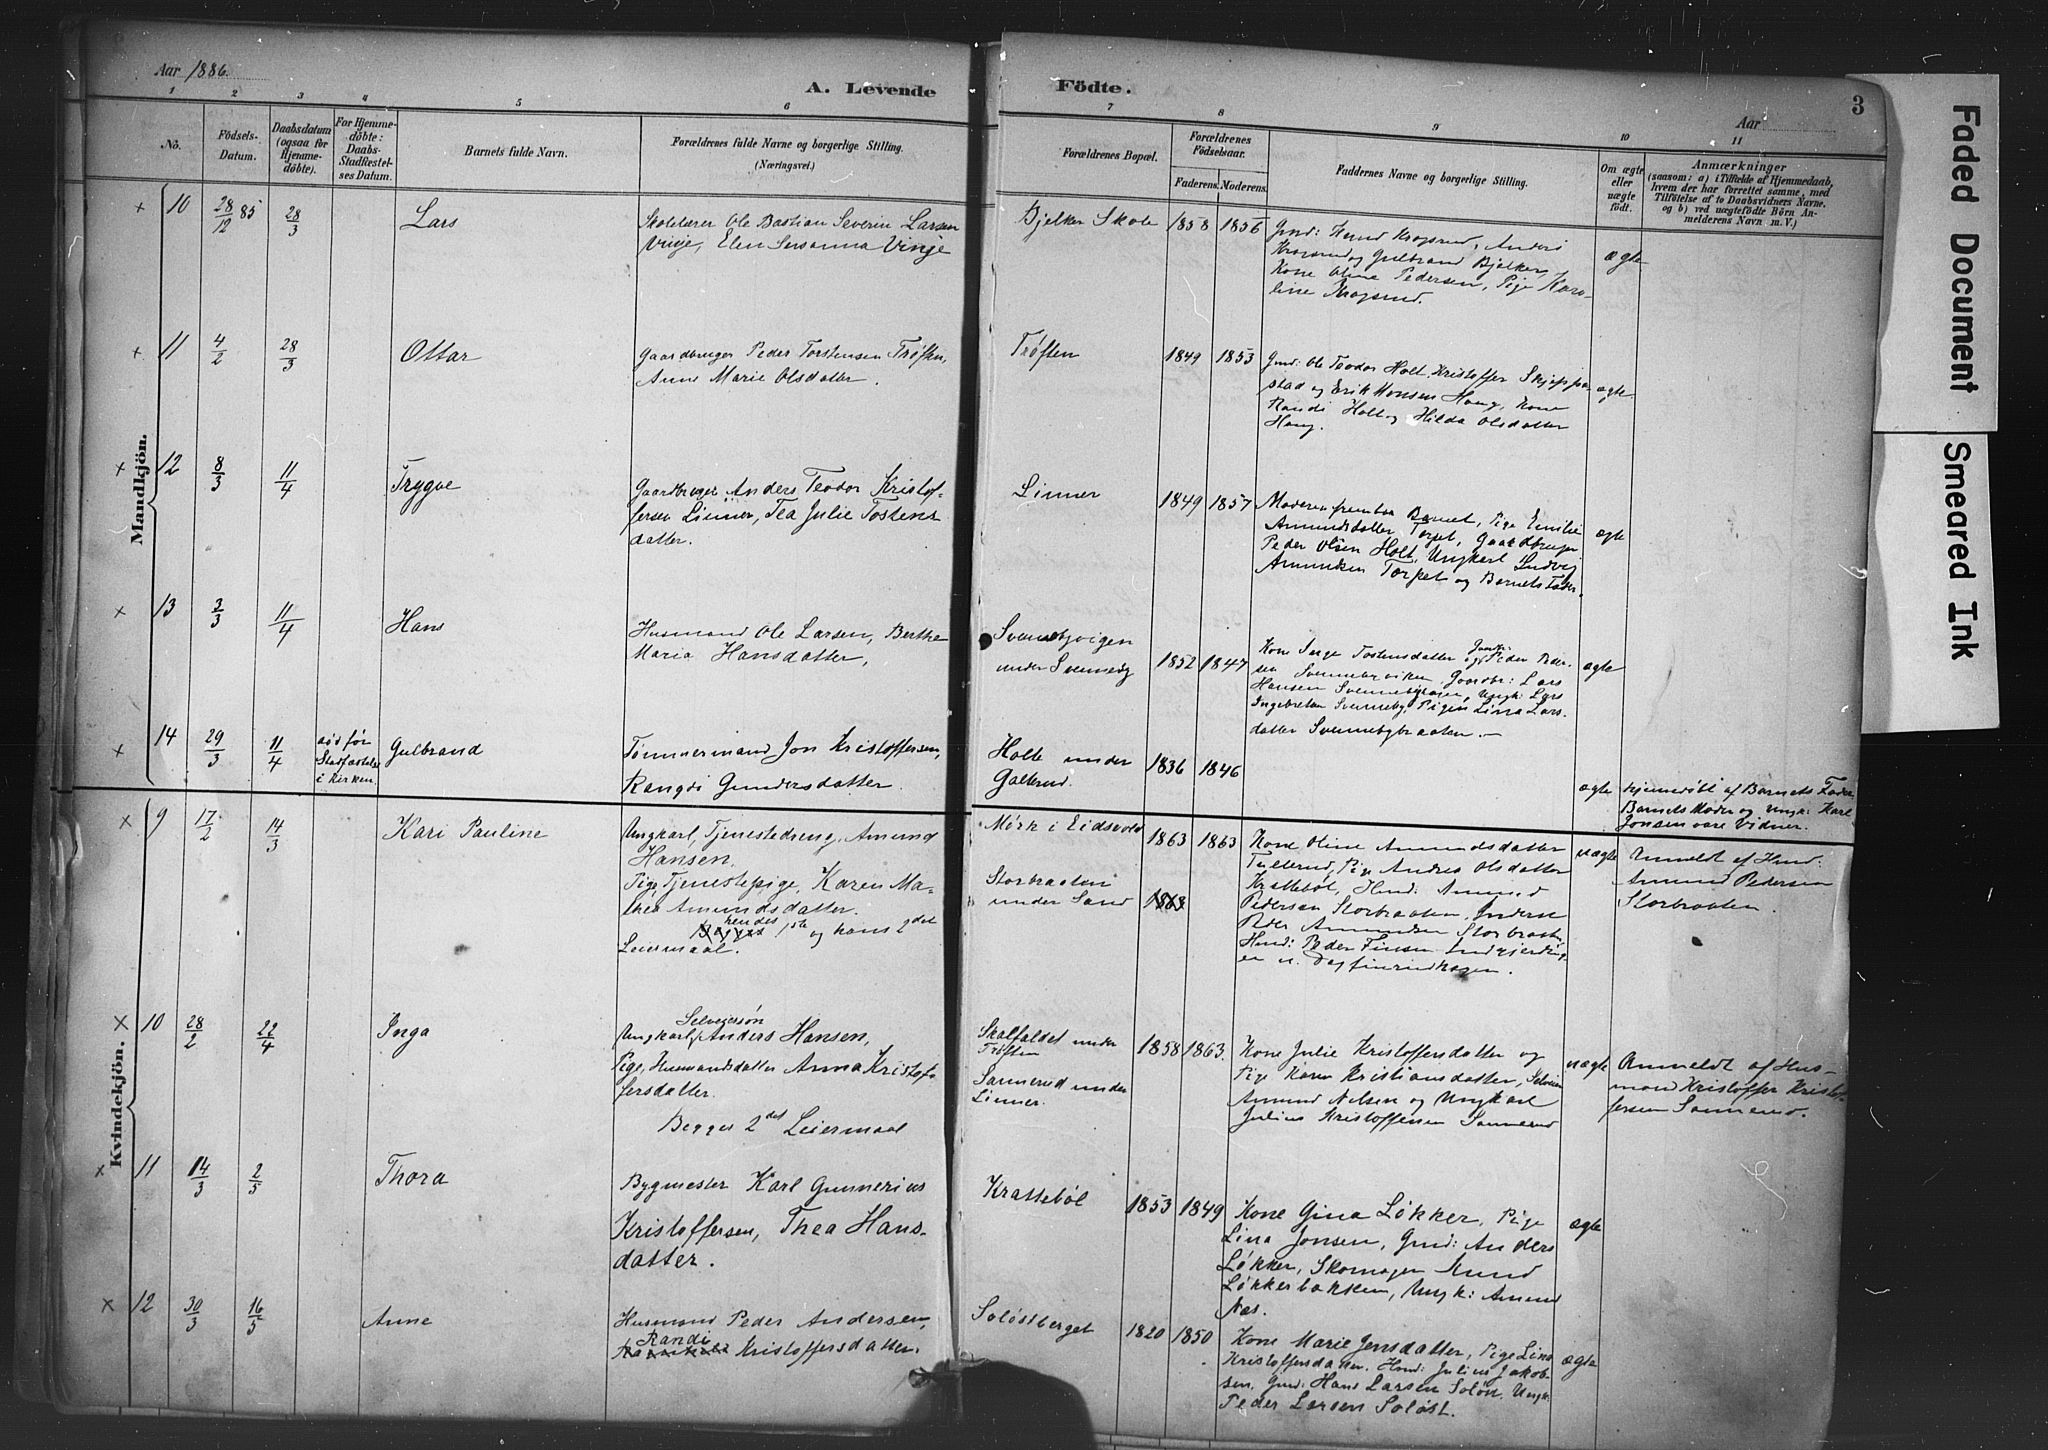 Aar 1886.
A. Levende
Födte.
3
Aar
1 2 3 4 5 6 7 8 9 10 11
No.
Födsels-
Datum.
Daabsdatum
(ogsaa for
Hjemme-
döbte).
For Hjemme-
döbte:
Daabs-
Stadfæstel-
ses Datum.
Barnets fulde Navn.
Forældrenes fulde Navne og borgerlige Stilling.
(Næringsvei.)
Forældrenes Bopæl.
Forældrenes
Födselsaar.
Faderens. Moderens.
Faddernes Navne og borgerlige Stilling.
Om ægte
eller
uægte
födt.
Anmærkninger
(saasom: a) i Tilfælde af Hjemmedaab,
hvem der har forrettet samme, med
Tilföielse af to Daabsvidners Navne.
og b) ved uægtefödte Börn An-
melderens Navn m. V.)
Mandkjön.
× 10 28/12 85 28/3 Lars
Skolelærer Ole Bastian Severin Larsen
Vinje, Elen Susanna Vinje
Bjelker Skole 1858 1856
Gmd: Knud Krogsrud, Anders
Krogsrud og Gulbrand Bjelker,
Kone Oline Pedersen, Pige Karo-
line Krogsrud.
ægte
× 11 4/2 28/3 Ottar
Gaardbruger Peder Torstensen Trøften,
Anne Marie Olsdatter.
Trøften 1849 1853
Gmd: Ole Teodor Holt, Kristoffer Skjeppe-
stad og Erik Monsen Haug, Kone
Randi Holt og Hilda Olsdatter
Haug.
ægte
× 12 8/3 11/4 Trygve
Gaardbruger Anders Teodor Kristof-
fersen Linner, Tea Julie Tostens
datter.
Linner 1849 1857
Moderen frembar Barnet, Pige Emilie
Amundsdatter Torpet, Gaardbruger
Peder Olsen Holt, Ungkarl Ludvig
Amundsen Torpet og Barnets Fader.
ægte
× 13 3/3 11/4 Hans
Husmand Ole Larsen, Berthe
Maria Hansdatter,
Svennebyvigen
under Svenneby
1852 1847
Kone Inge Tostensdatter og Gaardbr: Peder Peder-
sen Svennebyviken, Gaardbr: Lars
Hansen Svennebybraaten, Ungk: Lars
Ingebretsen Svenneby, Pigen Lina Lars-
datter Svennebybraaten.
ægte
× 14 29/3 11/4 død før
Stadfæstelse
i Kirken.
Gulbrand
Tømmermand Jon Kristoffersen,
Rangdi Gundersdatter.
Holte under
Galterud.
1836 1846
ægte
hjemdøbt af Barnets Fader
Barnets Moder og Ungk: Karl
Jonsen vare Vidner.
Kvindekjön.
× 9 17/2 14/3 Kari Pauline
Ungkarl, Tjenestedreng, Amund
Hansen.
Pige, Tjenestepige, Karen Ma-
thea Amundsdatter.
Begges hendes 1ste og hans 2det
Leiermaal.
Mørk i Eidsvold
Storbraaten
under Sand
1863 1863
1863
Kone Oline Amundsdatter
Tullerud, Pige Andrea Olsdatter
Krattebøl, Husmd: Amund
Pedersen Storbraaten, Inderst
Peder Amundsen Storbraaten,
Husmd: Peder Finsen
uægte
Anmeldt af Husmd:
Amund Pedersen
Storbraaten.
× 10 28/2 22/4 Inga
Selveiersøn
Ungkarl, Anders Hansen,
Pige, Husmandsdatter Anna Kristof-
fersdatter.
Begges 2det Leiermaal
Skalfaldet under
Trøften
Sannerud under
Linner.
1858 1863.
Kone Julie Kristoffersdatter og
Pige Karen Kristiansdatter, Selveier
Amund Nilsen og Ungkarl
Julius Kristoffersen Sannerud
uægte
Anmeldt af Hus-
mand Kristoffer Kristof-
fersen Sannerud.
× 11 14/3 2/5 Thora
Bygmester Karl Gunnerius
Kristoffersen, Thea Hans-
datter.
Krattebøl 1853 1849
Kone Gina Løkker, Pige
Lina Jonsen, Gmd: Anders
Løkker, Skomager Knud
Løkkerbakken, Ungk: Amund
Næs.
ægte
× 12 30/3 16/5 Anne
Husmand Peder Andersen,
Randi
Kristoffersdatter.
Soløstberget 1820 1850
Kone Marie Jensdatter, Pige Lina
Kristoffersdatter, Husmd: Julius Jakob-
sen, Gmd: Hans Larsen Soløst, Ungk:
Peder Larsen Soløst.
ægte
Faded Document
Smeared Ink